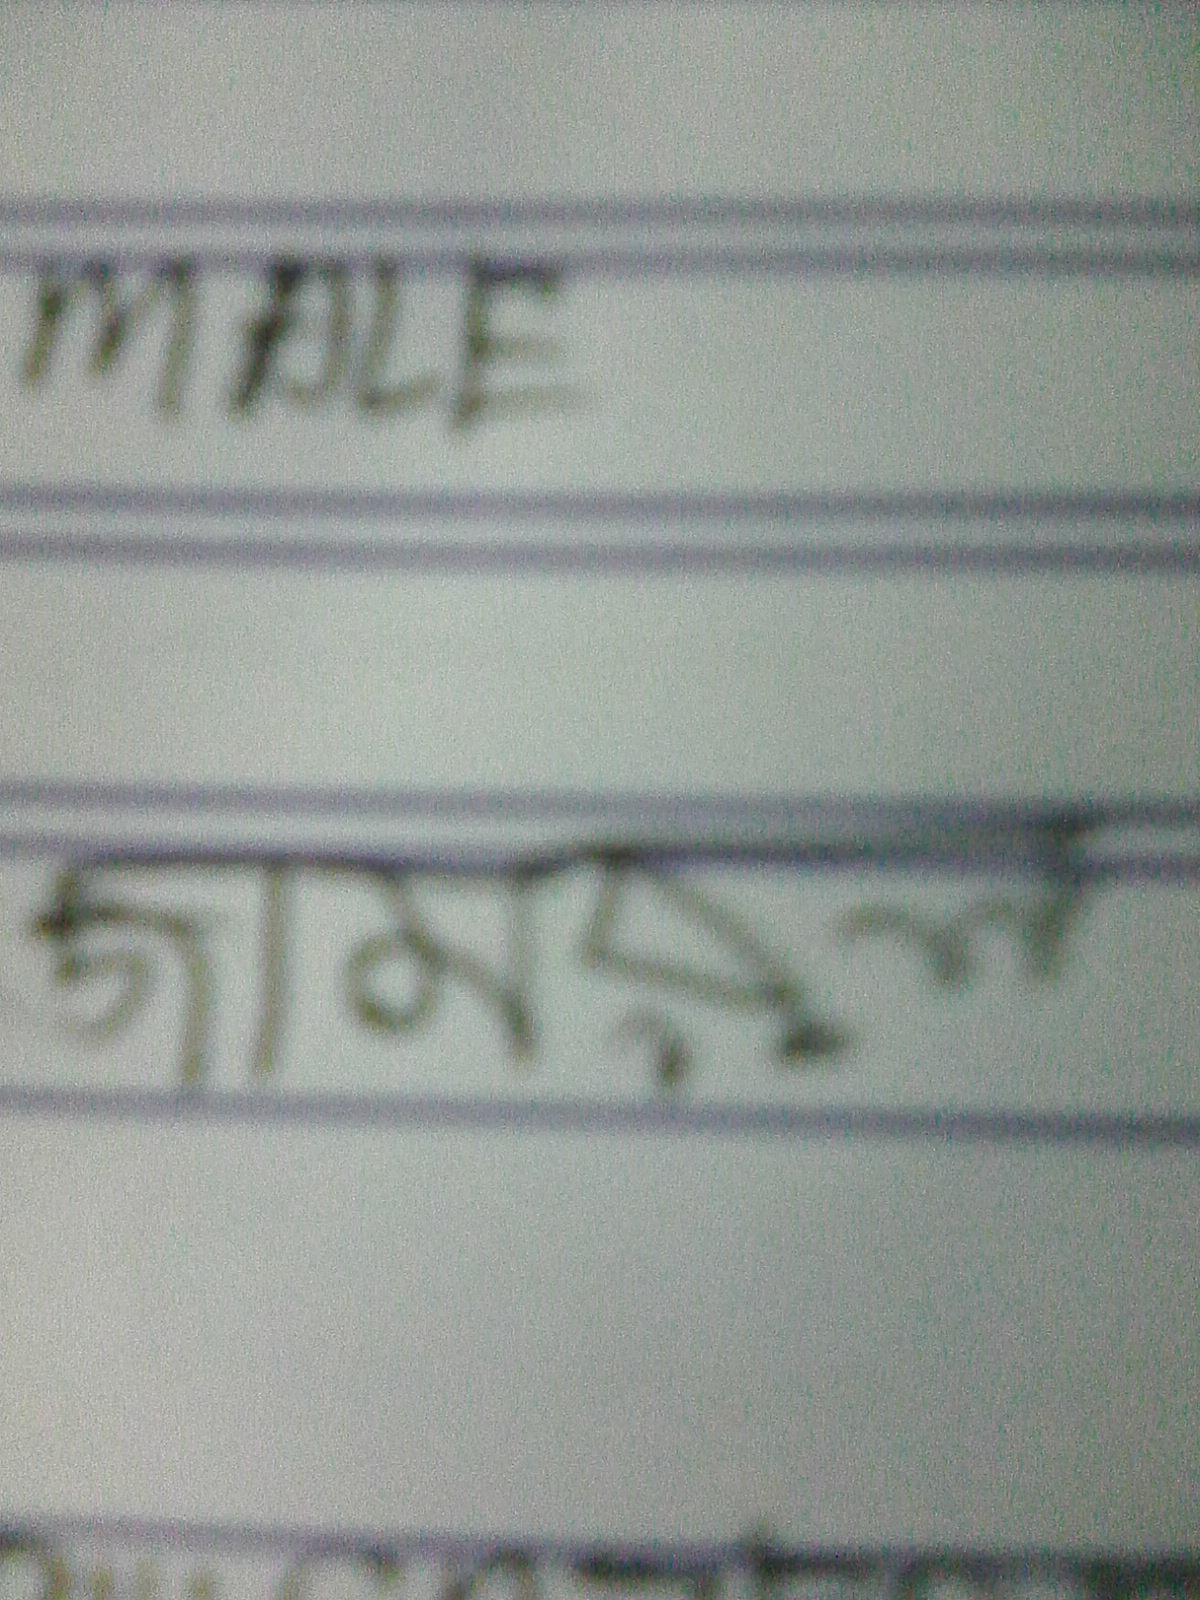 MALE
জামরুল